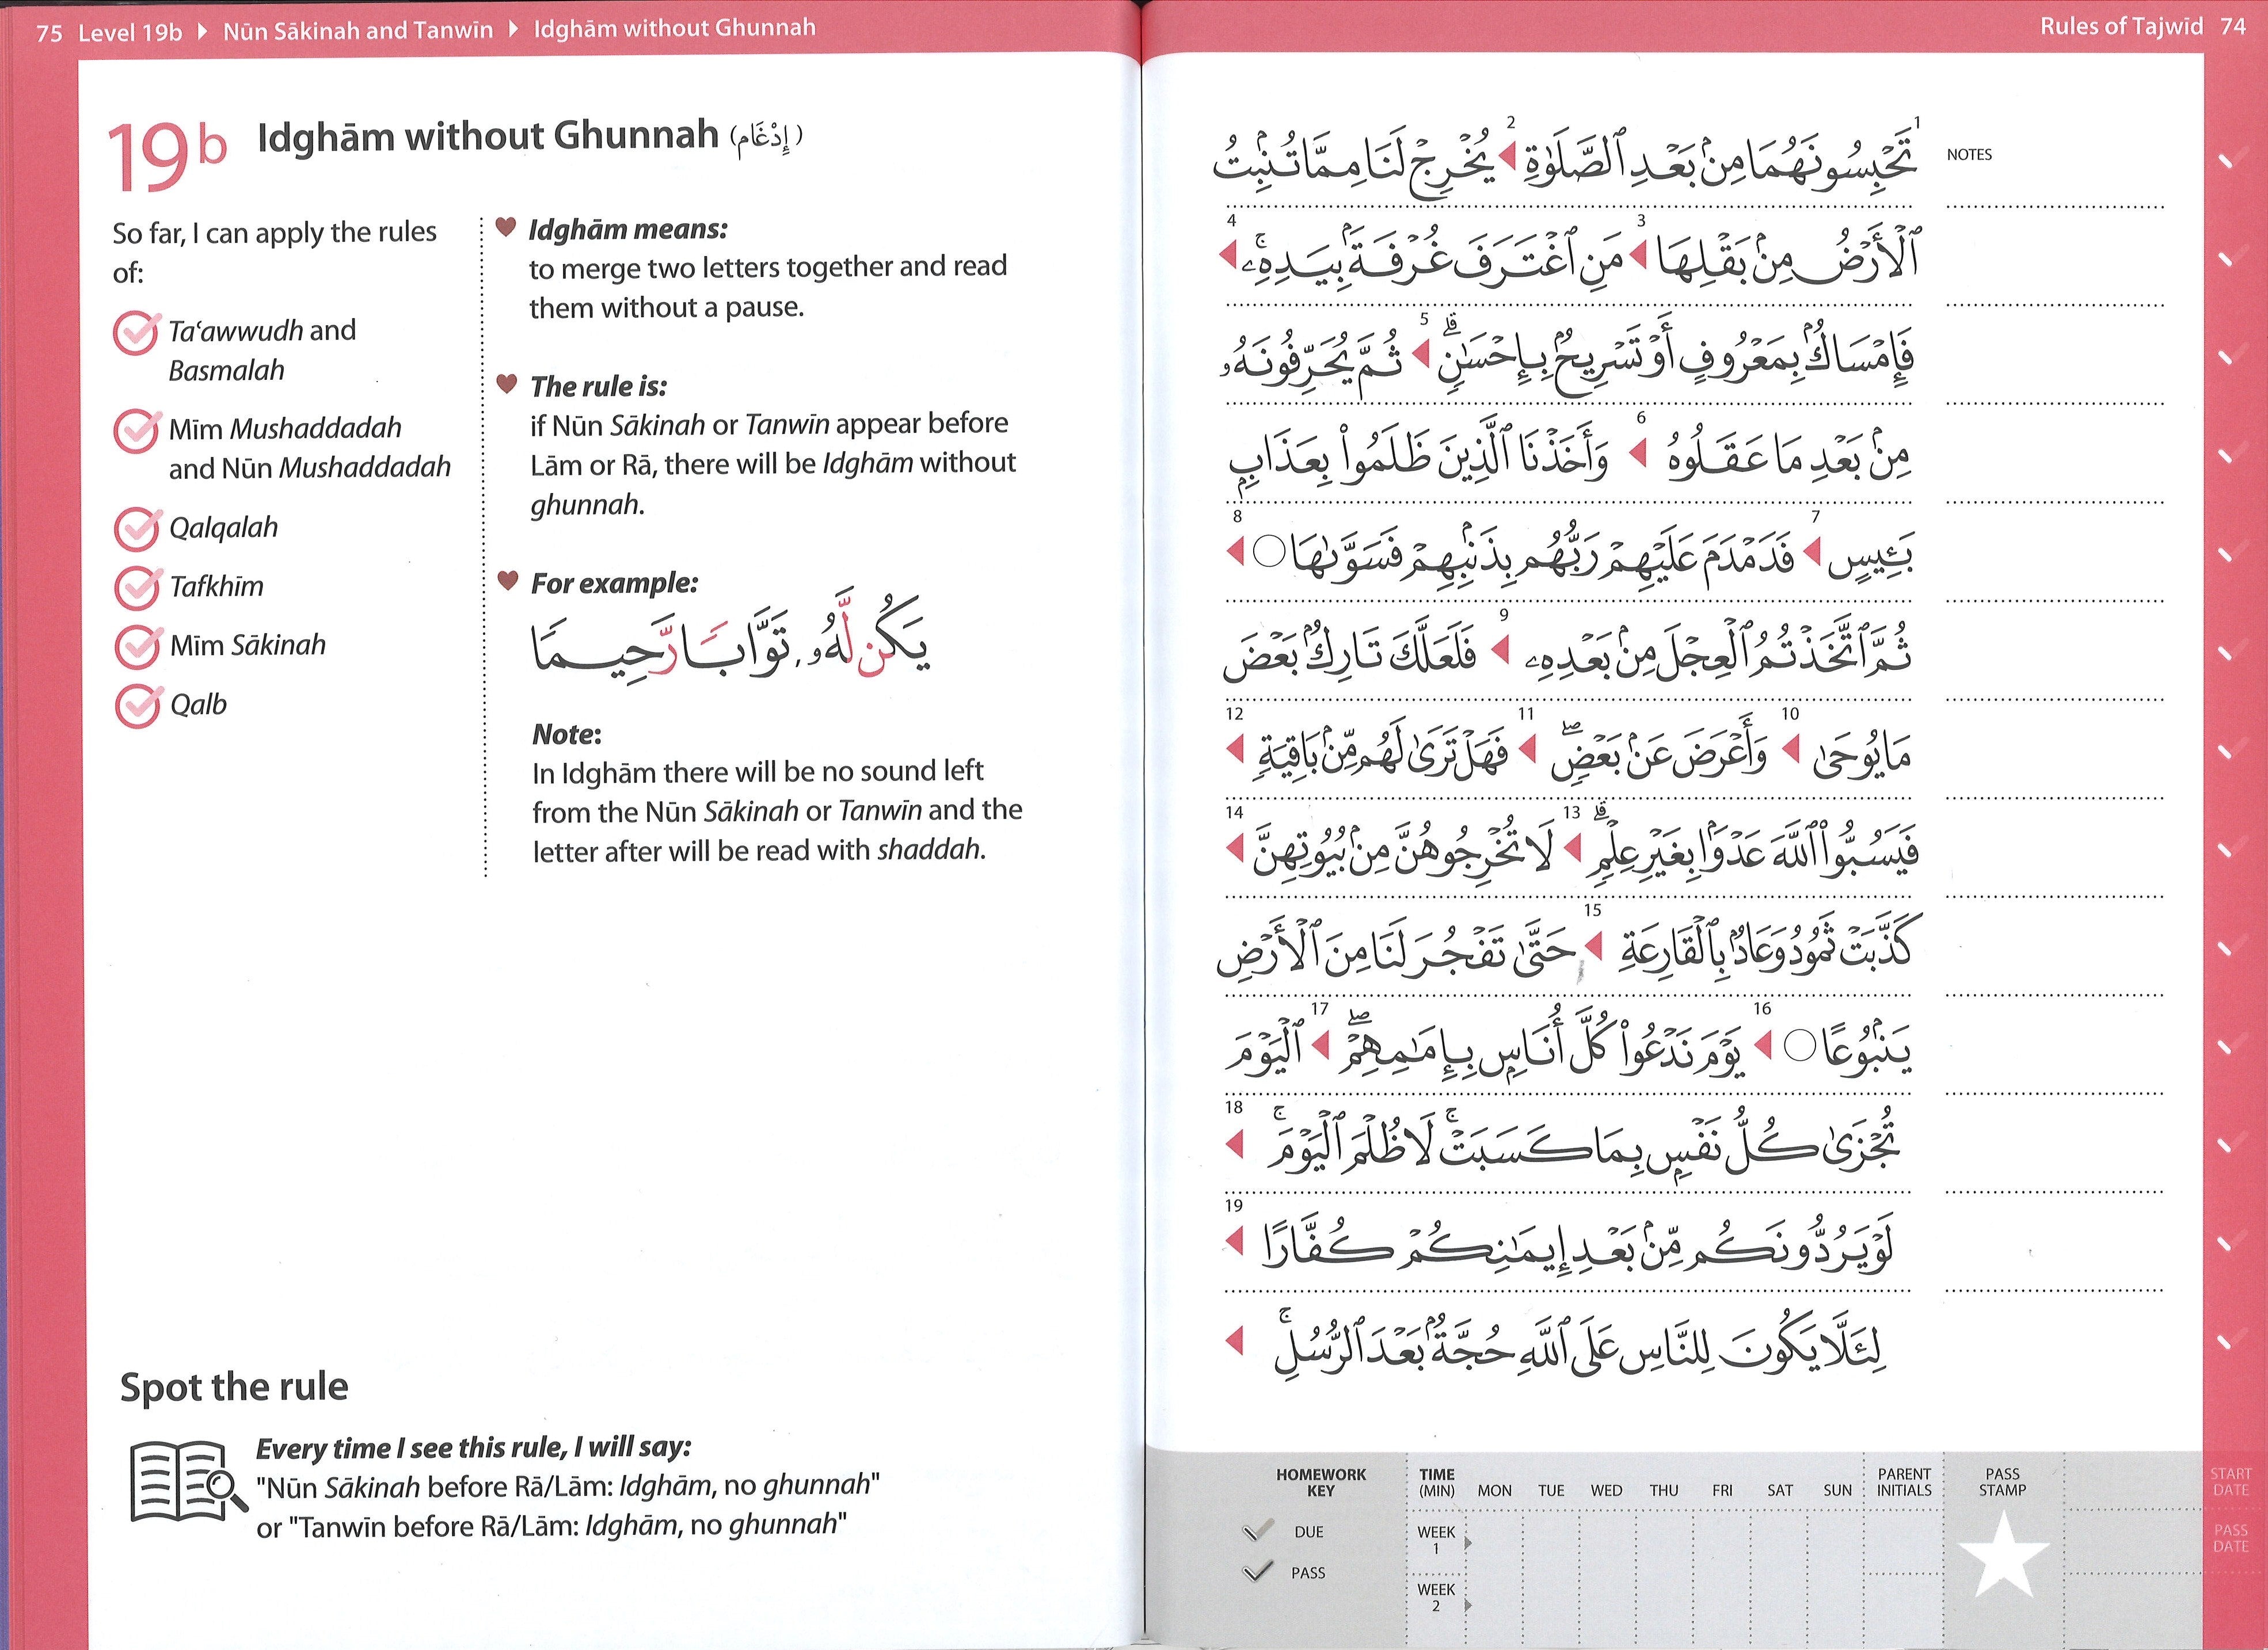 75 Level 19b ▶ Nūn Sākinah and Tanwīn ▶ Idghām without Ghunnah
19b Idghām without Ghunnah (إِدْغَام)
So far, I can apply the rules
of:
Ta'awwudh and
Basmalah
Mīm Mushaddadah
and Nūn Mushaddadah
Qalqalah
Tafkhīm
Mīm Sākinah
Qalb
Idghām means:
to merge two letters together and read
them without a pause.
The rule is:
if Nūn Sākinah or Tanwīn appear before
Lām or Rā, there will be Idghām without
ghunnah.
For example:
يَكُن لَّهُۥ ، تَوَّابَا رَّحِيمَا
Note:
In Idghām there will be no sound left
from the Nūn Sākinah or Tanwīn and the
letter after will be read with shaddah.
Spot the rule
Every time I see this rule, I will say:
"Nūn Sākinah before Rā/Lām: Idghām, no ghunnah"
or "Tanwīn before Rā/Lām: Idghām, no ghunnah"
Rules of Tajwīd 74
NOTES
1 تَحْبِسُونَهُمَا مِنۢ بَعْدِ ٱلصَّلَوٰةِ 2 يُخْرِجْ لَنَا مِمَّا تُنۢبِتُ
ٱلْأَرْضُ مِنۢ بَقْلِهَا 3 مَنِ ٱغْتَرَفَ غُرْفَةَۢ بِيَدِهِۦۚ 4
فَإِمْسَاكُۢ بِمَعْرُوفٍ أَوْ تَسْرِيحُۢ بِإِحْسَٰنٍۗ 5 ثُمَّ يُحَرِّفُونَهُۥ
مِنۢ بَعْدِ مَا عَقَلُوهُ 6 وَأَخَذْنَا ٱلَّذِينَ ظَلَمُوا۟ بِعَذَابِۭ
بَـِٔيسٍ 7 فَدَمْدَمَ عَلَيْهِمْ رَبُّهُم بِذَنۢبِهِمْ فَسَوَّىٰهَا 8
ثُمَّ ٱتَّخَذْتُمُ ٱلْعِجْلَ مِنۢ بَعْدِهِۦ 9 فَلَعَلَّكَ تَارِكُۢ بَعْضَ
مَا يُوحَىٰ 10 وَأَعْرَضَ عَنۢ بَعْضٍۖ 11 فَهَلْ تَرَىٰ لَهُم مِّنۢ بَاقِيَةٍ 12
فَيَسُبُّوا۟ ٱللَّهَ عَدْوَۢا بِغَيْرِ عِلْمٍۗ 13 لَا تُخْرِجُوهُنَّ مِنۢ بُيُوتِهِنَّ 14
كَذَّبَتْ ثَمُودُ وَعَادُۢ بِٱلْقَارِعَةِ 15 حَتَّىٰ تَفْجُرَ لَنَا مِنَ ٱلْأَرْضِ
يَنۢبُوعًا 16 يَوْمَ نَدْعُوا۟ كُلَّ أُنَاسِۭ بِإِمَٰمِهِمْۖ 17 ٱلْيَوْمَ
تُجْزَىٰ كُلُّ نَفْسِۭ بِمَا كَسَبَتْۚ لَا ظُلْمَ ٱلْيَوْمَۚ 18
لَوْ يَرُدُّونَكُم مِّنۢ بَعْدِ إِيمَٰنِكُمْ كُفَّارًا 19
لِئَلَّا يَكُونَ لِلنَّاسِ عَلَى ٱللَّهِ حُجَّةُۢ بَعْدَ ٱلرُّسُلِۚ
HOMEWORK
KEY
DUE
PASS
TIME
(MIN) MON TUE WED THU FRI SAT SUN
WEEK
1
WEEK
2
PARENT
INITIALS
PASS
STAMP
START
DATE
PASS
DATE